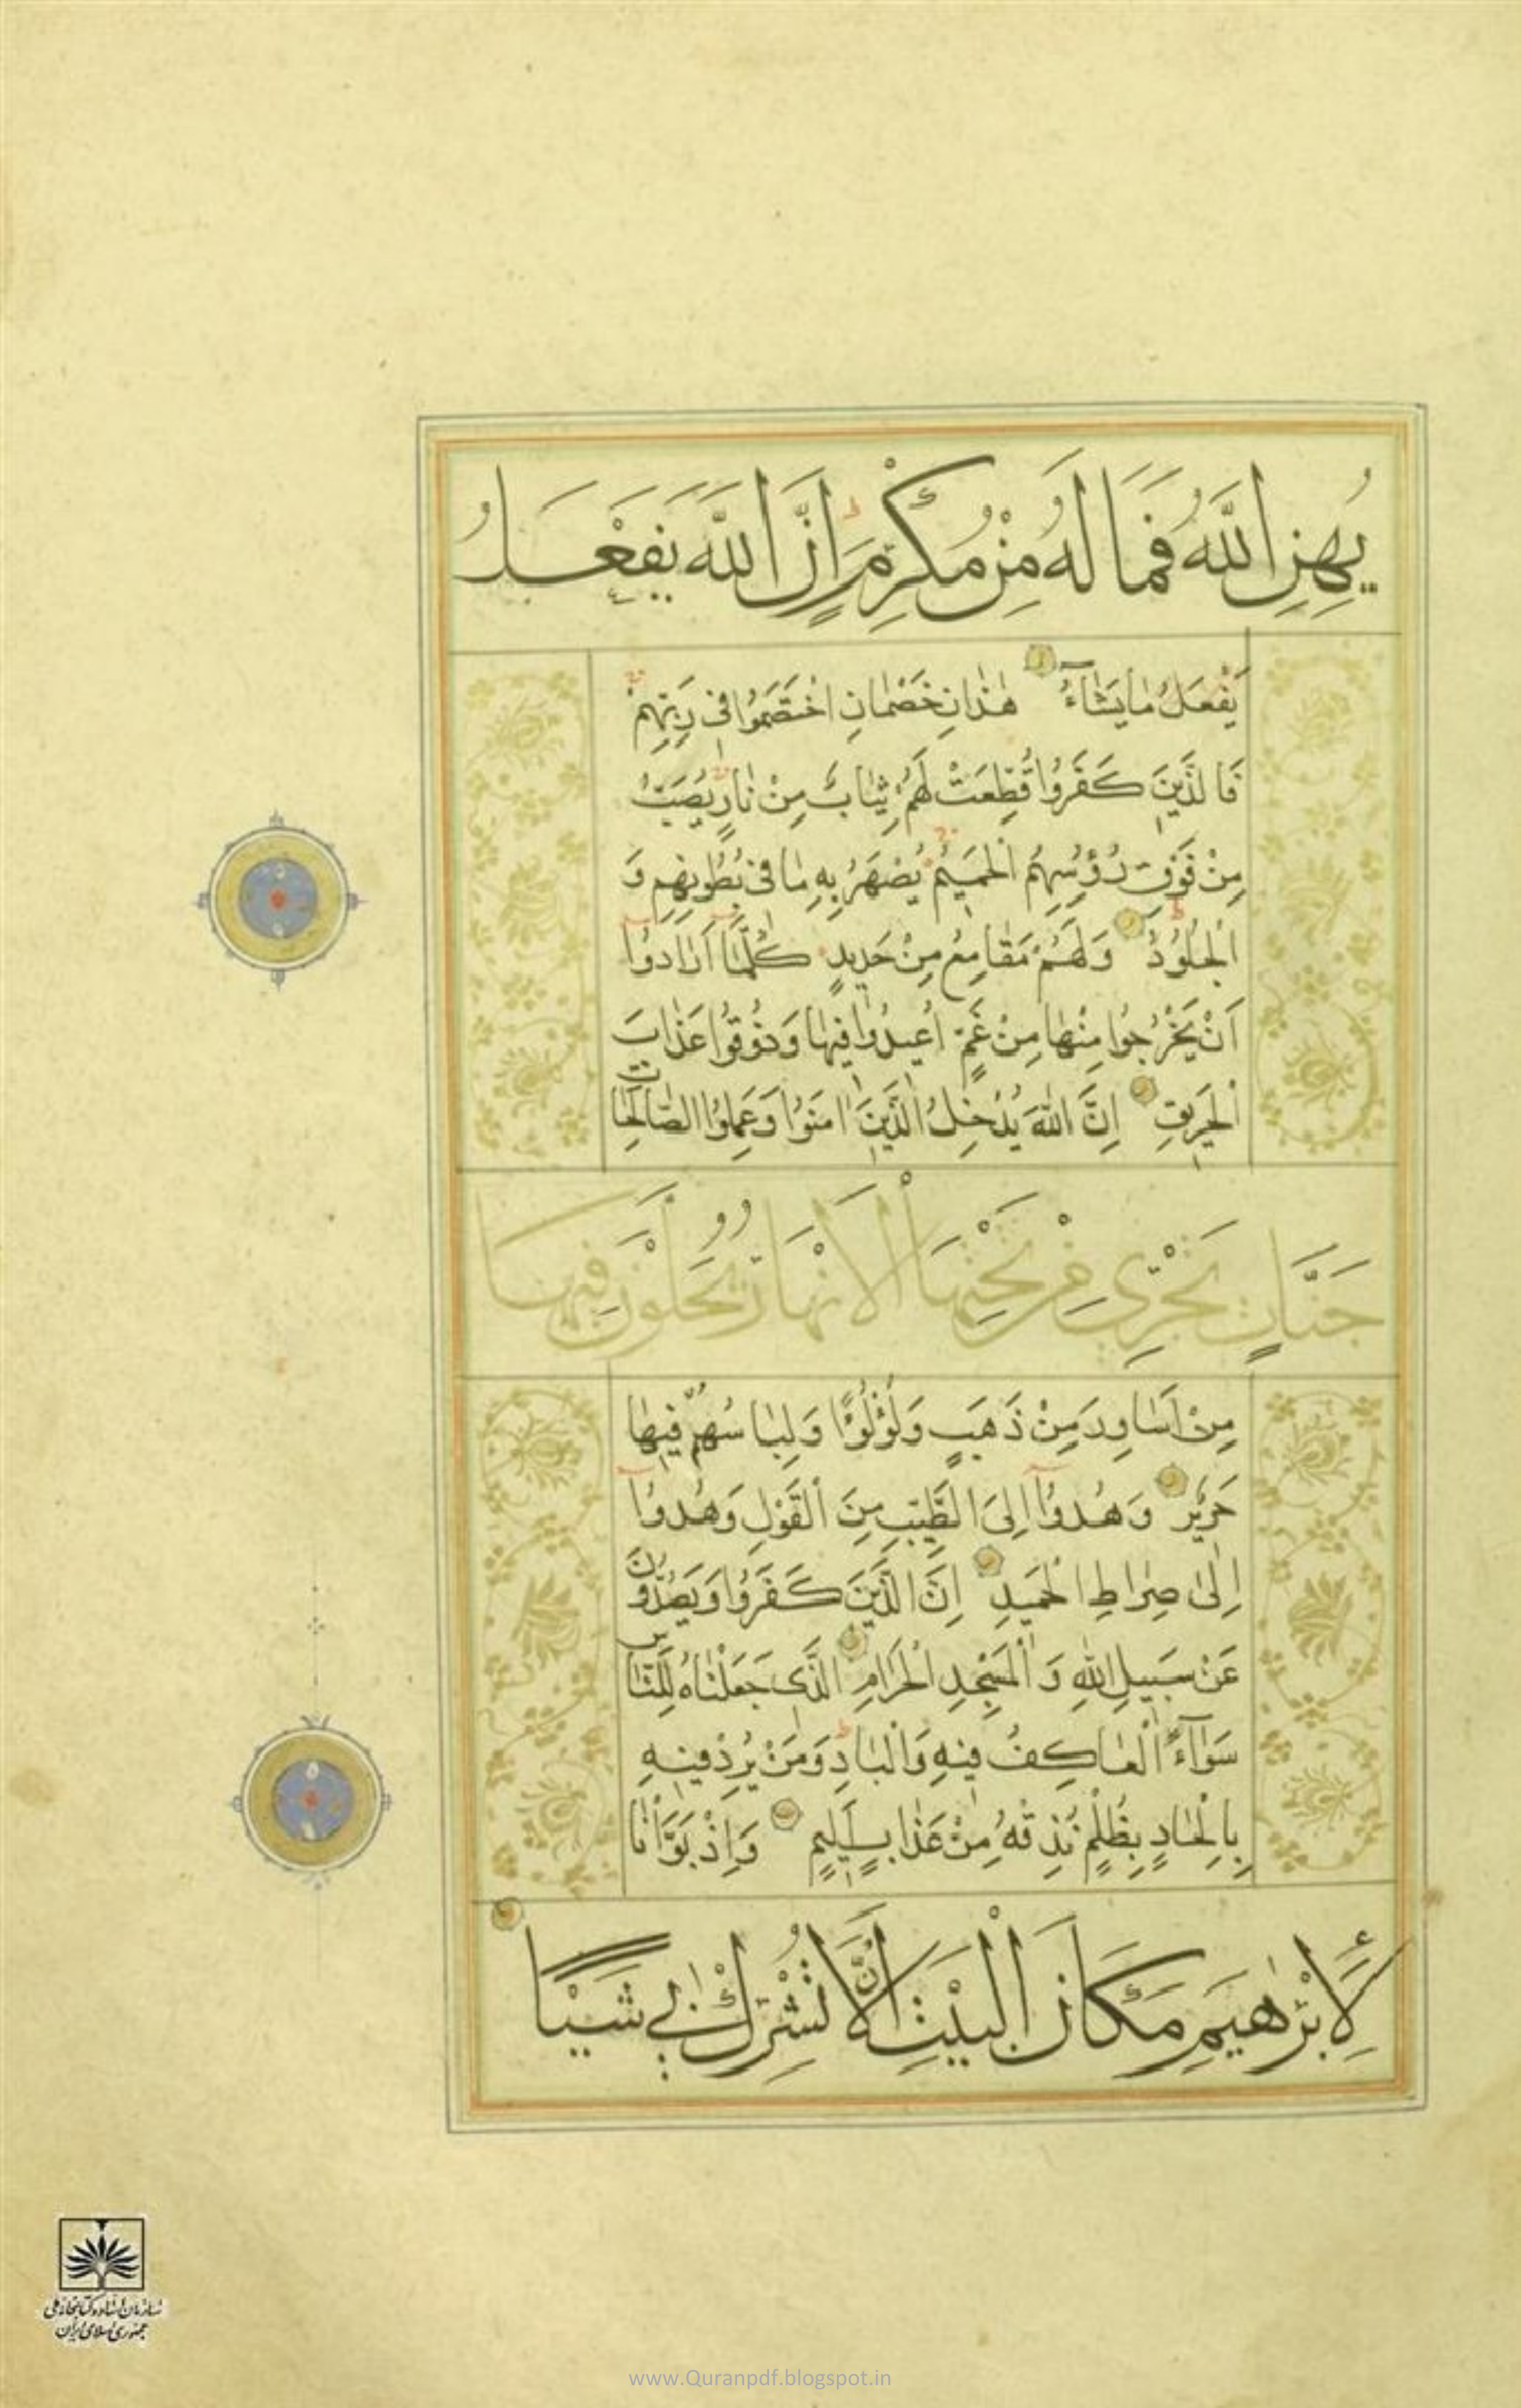 يُهِنِ اللَّهُ فَمَا لَهُ مِنْ مُكْرِمٍ اِنَّ اللَّهَ يَفْعَلُ
يَفْعَلُ مَا يَشَاءُ هٰذَانِ خَصْمَانِ اخْتَصَمُوا فِي رَبِّهِمْ
فَالَّذِينَ كَفَرُوا قُطِّعَتْ لَهُمْ ثِيَابٌ مِنْ نَارٍ يُصَبُّ
مِنْ فَوْقِ رُؤُسِهِمُ الْحَمِيمُ يُصْهَرُ بِهِ مَا فِي بُطُونِهِمْ وَ
الْجُلُودُ وَلَهُمْ مَقَامِعُ مِنْ حَدِيدٍ كُلَّمَا اَرَادُوا
اَنْ يَخْرُجُوا مِنْهَا مِنْ غَمٍّ اُعِيدُوا فِيهَا وَذُوقُوا عَذَابَ
الْحَرِيقِ اِنَّ اللَّهَ يُدْخِلُ الَّذِينَ اٰمَنُوا وَعَمِلُوا الصَّالِحَاتِ
جَنَّاتٍ تَجْرِي مِنْ تَحْتِهَا الْاَنْهَارُ يُحَلَّوْنَ فِيهَا
مِنْ اَسَاوِرَ مِنْ ذَهَبٍ وَلُؤْلُؤًا وَلِبَاسُهُمْ فِيهَا
حَرِيرٌ وَهُدُوا اِلَى الطَّيِّبِ مِنَ الْقَوْلِ وَهُدُوا
اِلٰى صِرَاطِ الْحَمِيدِ اِنَّ الَّذِينَ كَفَرُوا وَيَصُدُّونَ
عَنْ سَبِيلِ اللَّهِ وَالْمَسْجِدِ الْحَرَامِ الَّذِي جَعَلْنَاهُ لِلنَّاسِ
سَوَاءً الْعَاكِفُ فِيهِ وَالْبَادِ وَمَنْ يُرِدْ فِيهِ
بِاِلْحَادٍ بِظُلْمٍ نُذِقْهُ مِنْ عَذَابٍ اَلِيمٍ وَاِذْ بَوَّأْنَا
لِاِبْرٰهِيمَ مَكَانَ الْبَيْتِ اَنْ لَّا تُشْرِكْ بِي شَيْئًا
سازمان اسناد و کتابخانه ملی
جمهوری اسلامی ایران
www.Quranpdf.blogspot.in